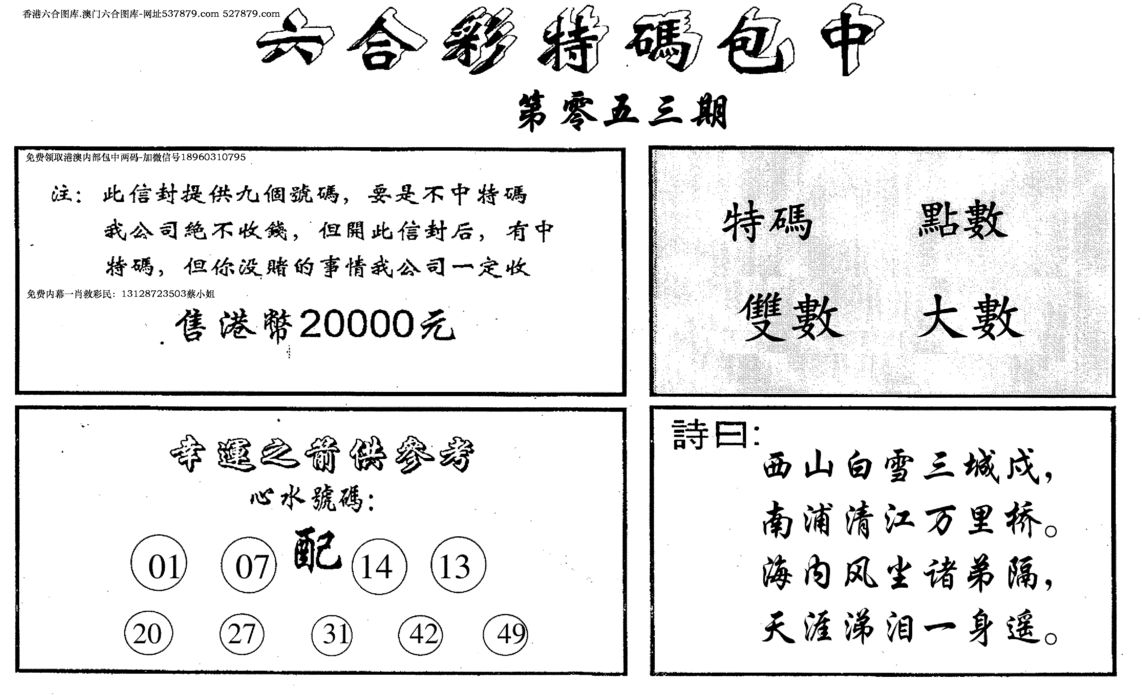 香港六合图库.澳门六合图库-网址537879.com 527879.com
六合彩特碼包中
第零五三期
免费领取港澳内部包中两码-加微信号18960310795
注：此信封提供九個號碼，要是不中特碼
我公司絶不收錢，但開此信封后，有中
特碼，但你没賭的事情我公司一定收
免费内幕一肖救彩民：13128723503蔡小姐
售港幣20000元
特碼 點數
雙數 大數
幸運之箭供參考
心水號碼：
01 07 配 14 13
20 27 31 42 49
詩曰：
西山白雪三城戍，
南浦清江万里桥。
海内风尘诸弟隔，
天涯涕泪一身遥。